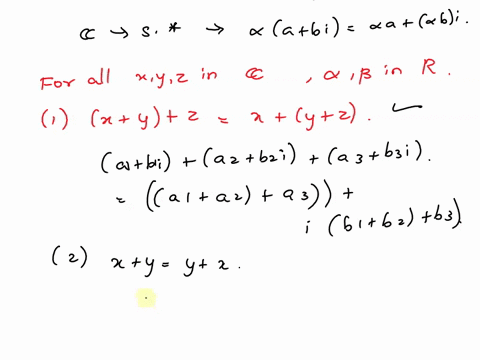 ℂ → s.* → α(a+bi) = αa+(αb)i.
For all x,y,z in ℂ , α,β in R.
(1) (x+y)+z = x+(y+z). ✓
(a1+b1i) + (a2+b2i) + (a3+b3i).
= ((a1+a2)+a3)) +
i (b1+b2)+b3).
(2) x+y = y+x.